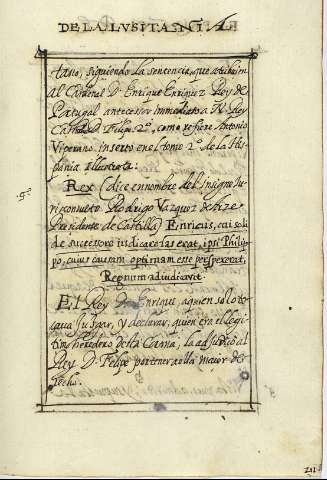 DE LA LUSITANIA
tano, siguiendo la sentencia, que atribuien
al Cardenal D. Enrique Enriquez Rey de
Portugal antecessor immediato a N. Rey
D. Felipe 2º, como refiere Antonio
Viperano inserto en el tomo 2º de la His
pania Illustrata:
Rex (dice en nombre del Insigne Ju
risconsulto Rodrigo Vazquez de Arze
Presidente de Castilla) Enricus, cui soli
de successore iudicare las erat, ipsi Philip
po, cuius causam optimam esse perspexerat,
Regnum adiudicavit.
El Rey D. Enrique, a quien solo to
cava juzgar, y declarar, quien era el legi
timo heredero de la Corona, la adjudicó al
Rey D. Felipe por tener a ella maior de
recho.